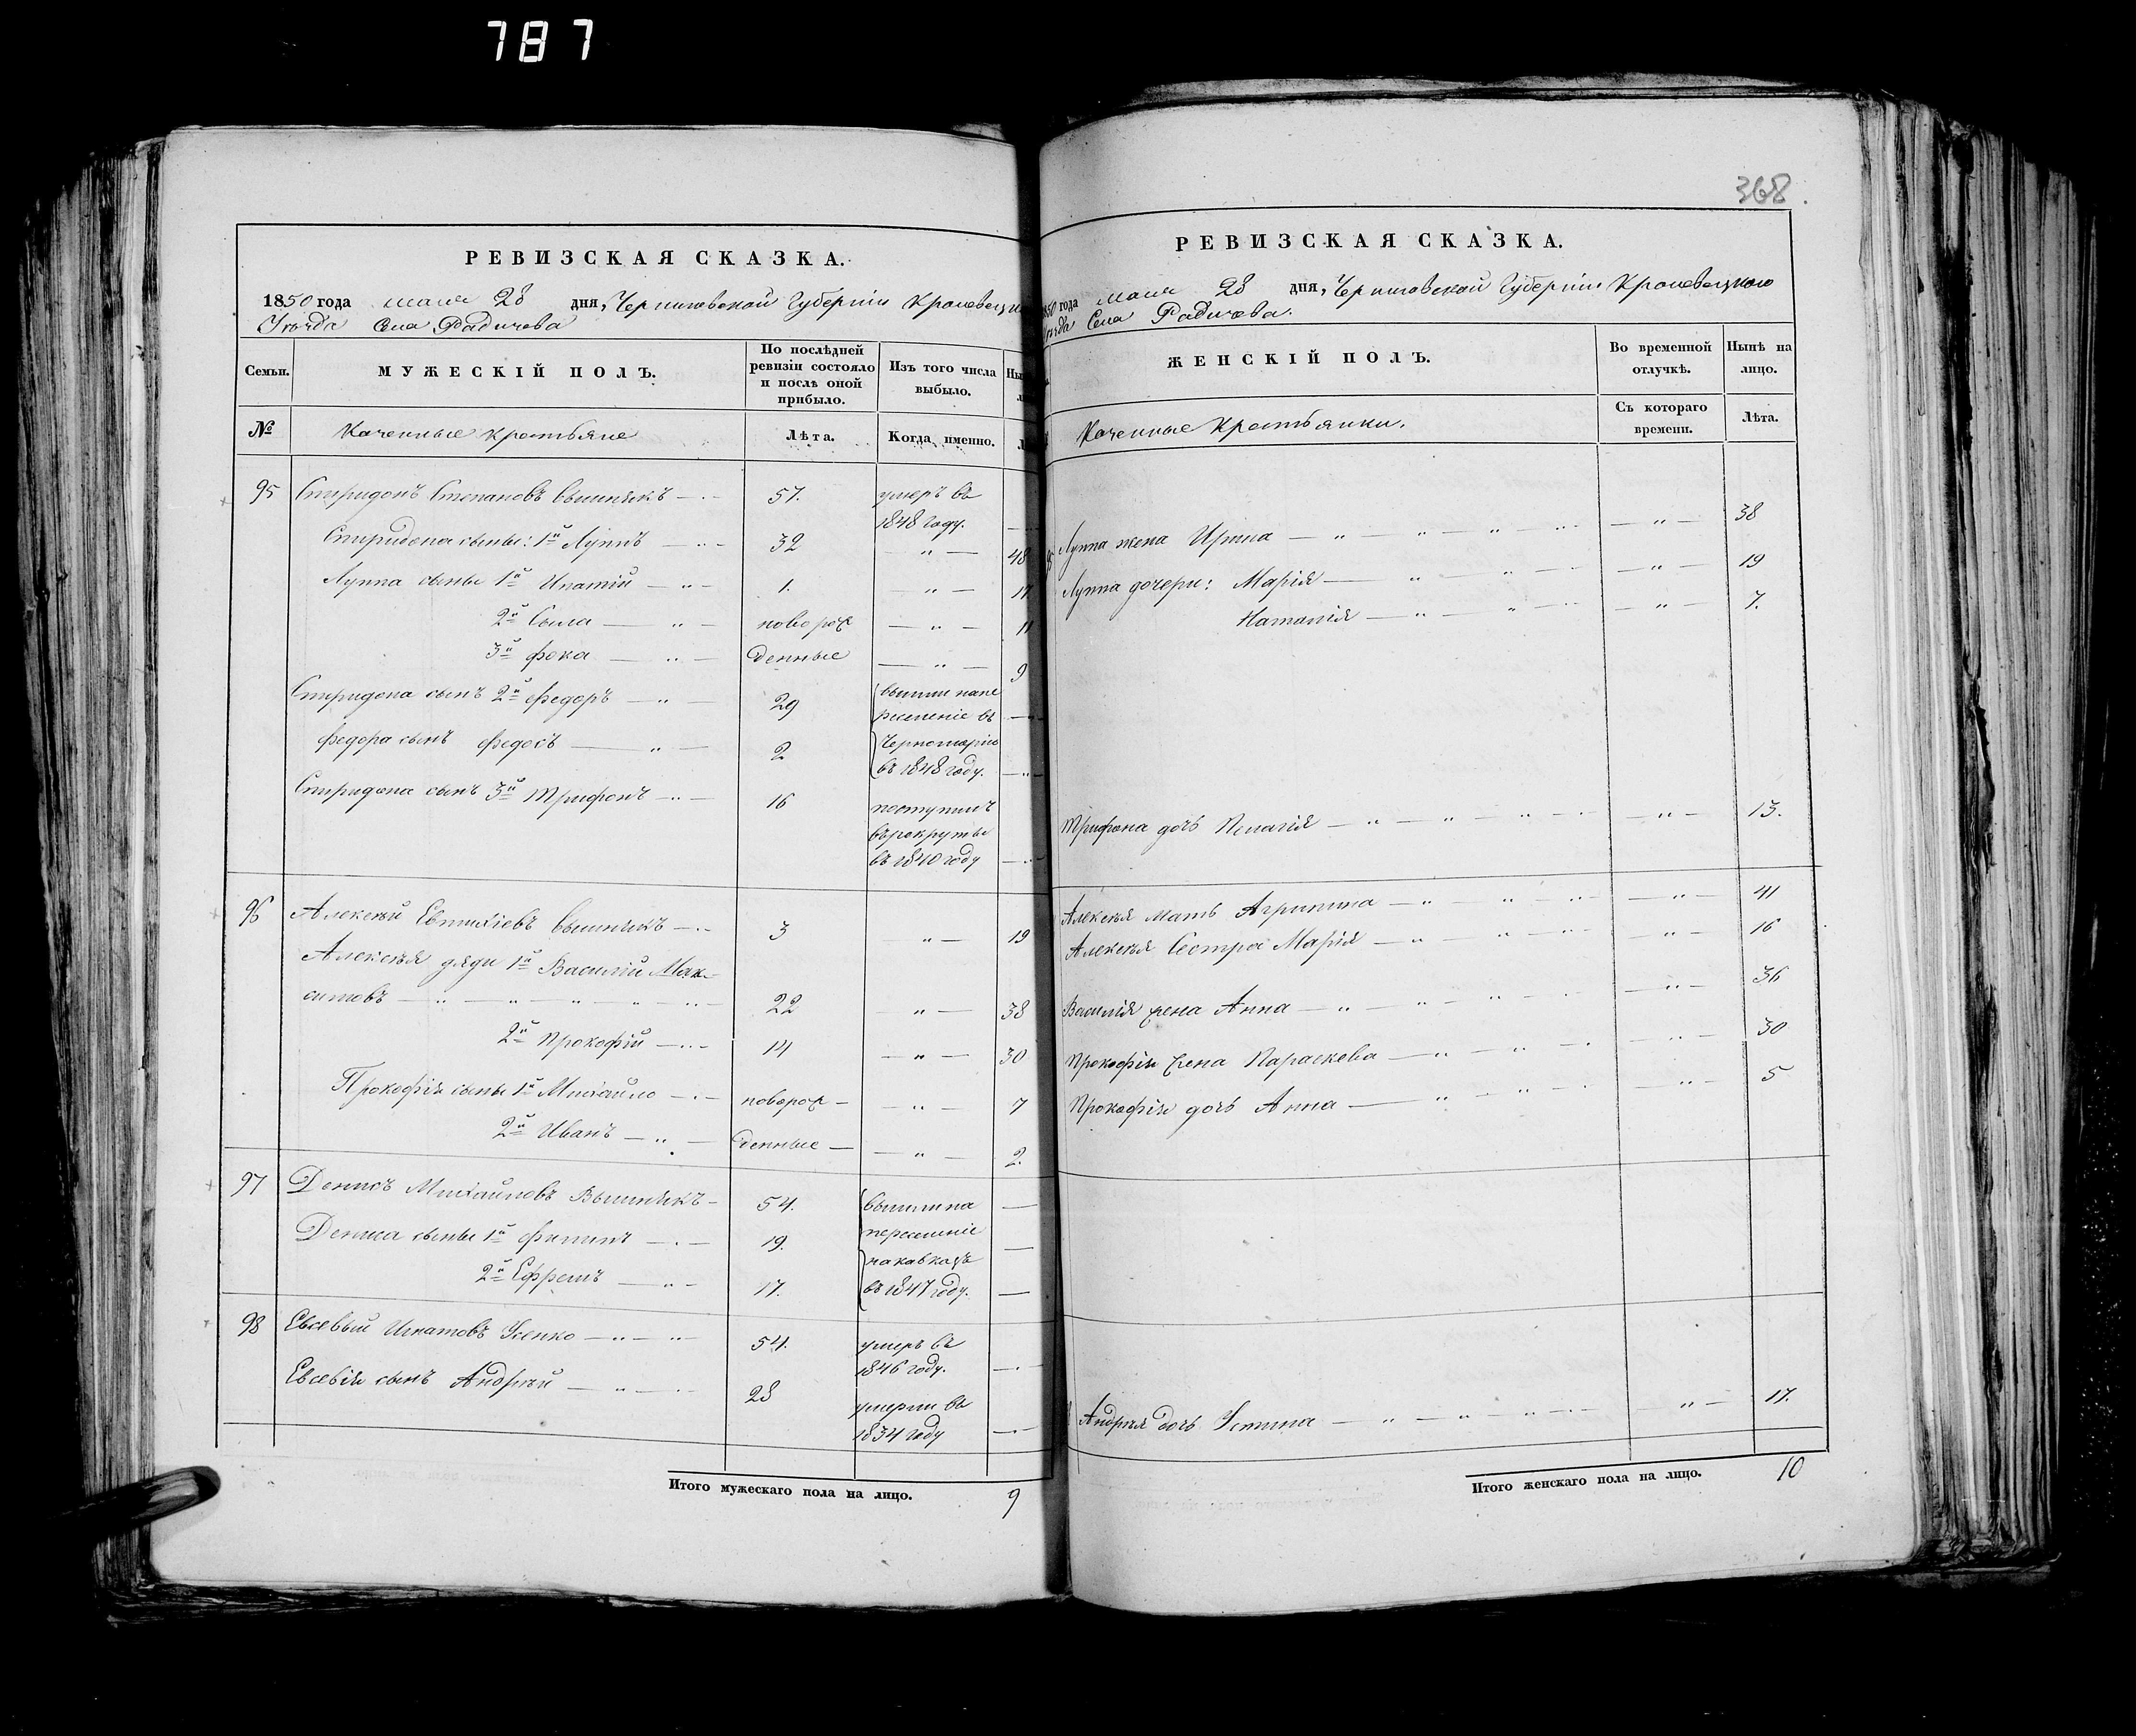 787
РЕВИЗСКАЯ СКАЗКА.
1850 года маия 28 дня, Черниговской Губернии Кролевецк
Уѣзда Села Радичева
Семьи.
МУЖЕСКІЙ ПОЛЪ.
По послѣдней ревизіи состояло и послѣ оной прибыло.
Изъ того числа выбыло.
№
Казенные крестьяне
Лѣта.
Когда именно.
95 Спиридонъ Степановъ Вышнякъ 57. умеръ въ
1848 году.
Спиридона сыны: 1й Луппъ 32 48
Луппа сыны 1й Ипатій 1. 17
2й Сыла новорож 11
3й Фока денные 9
Спиридона сынъ 2й Федоръ 29 вышли на пе
реселеніе въ
Федора сынъ Федосъ 2 Черноморію
въ 1848 году.
Спиридона сынъ 3й Трифонъ 16 поступилъ
въ рокруты
въ 1840 году
96 Алексѣй Евтихіевъ Вышнякъ 3 19
Алексѣя дяди 1й Василій Мак-
симовъ 22 38
2й Прокофій 14 30
Прокофія сыны 1й Михайло новорож 7
2й Иванъ денные 2.
97 Денисъ Михайловъ Вышнякъ 54. вышли на
переселеніе
Дениса сыны 1й Филипъ 19. на кавказъ
2й Ефремъ 17. въ 1847 году.
98 Евсевый Игнатовъ Усенко 54. умеръ въ
1846 году.
Евсевія сынъ Андрѣй 28 умерли въ
1834 году
Итого мужескаго пола на лицо. 9
368
РЕВИЗСКАЯ СКАЗКА.
1850 года маия 28 дня, Черниговской Губерніи Кролевецкого
Уѣзда Села Радичева.
ЖЕНСКІЙ ПОЛЪ.
Во временной отлучкѣ.
Нынѣ на лицо.
Казенные Крестьянки.
Съ котораго времени.
Лѣта.
Луппа жена Ирина 38
Луппа дочери: Марія 19
Наталія 7.
Трифона дочь Пелагія 13.
Алексѣя мать Агрипина 41
Алексѣя Сестра Марія 16
Василія жена Анна 36
Прокофія жена Параскева 30
Прокофія дочь Анна 5
Андрѣя дочь Устина 17.
Итого женскаго пола на лицо. 10